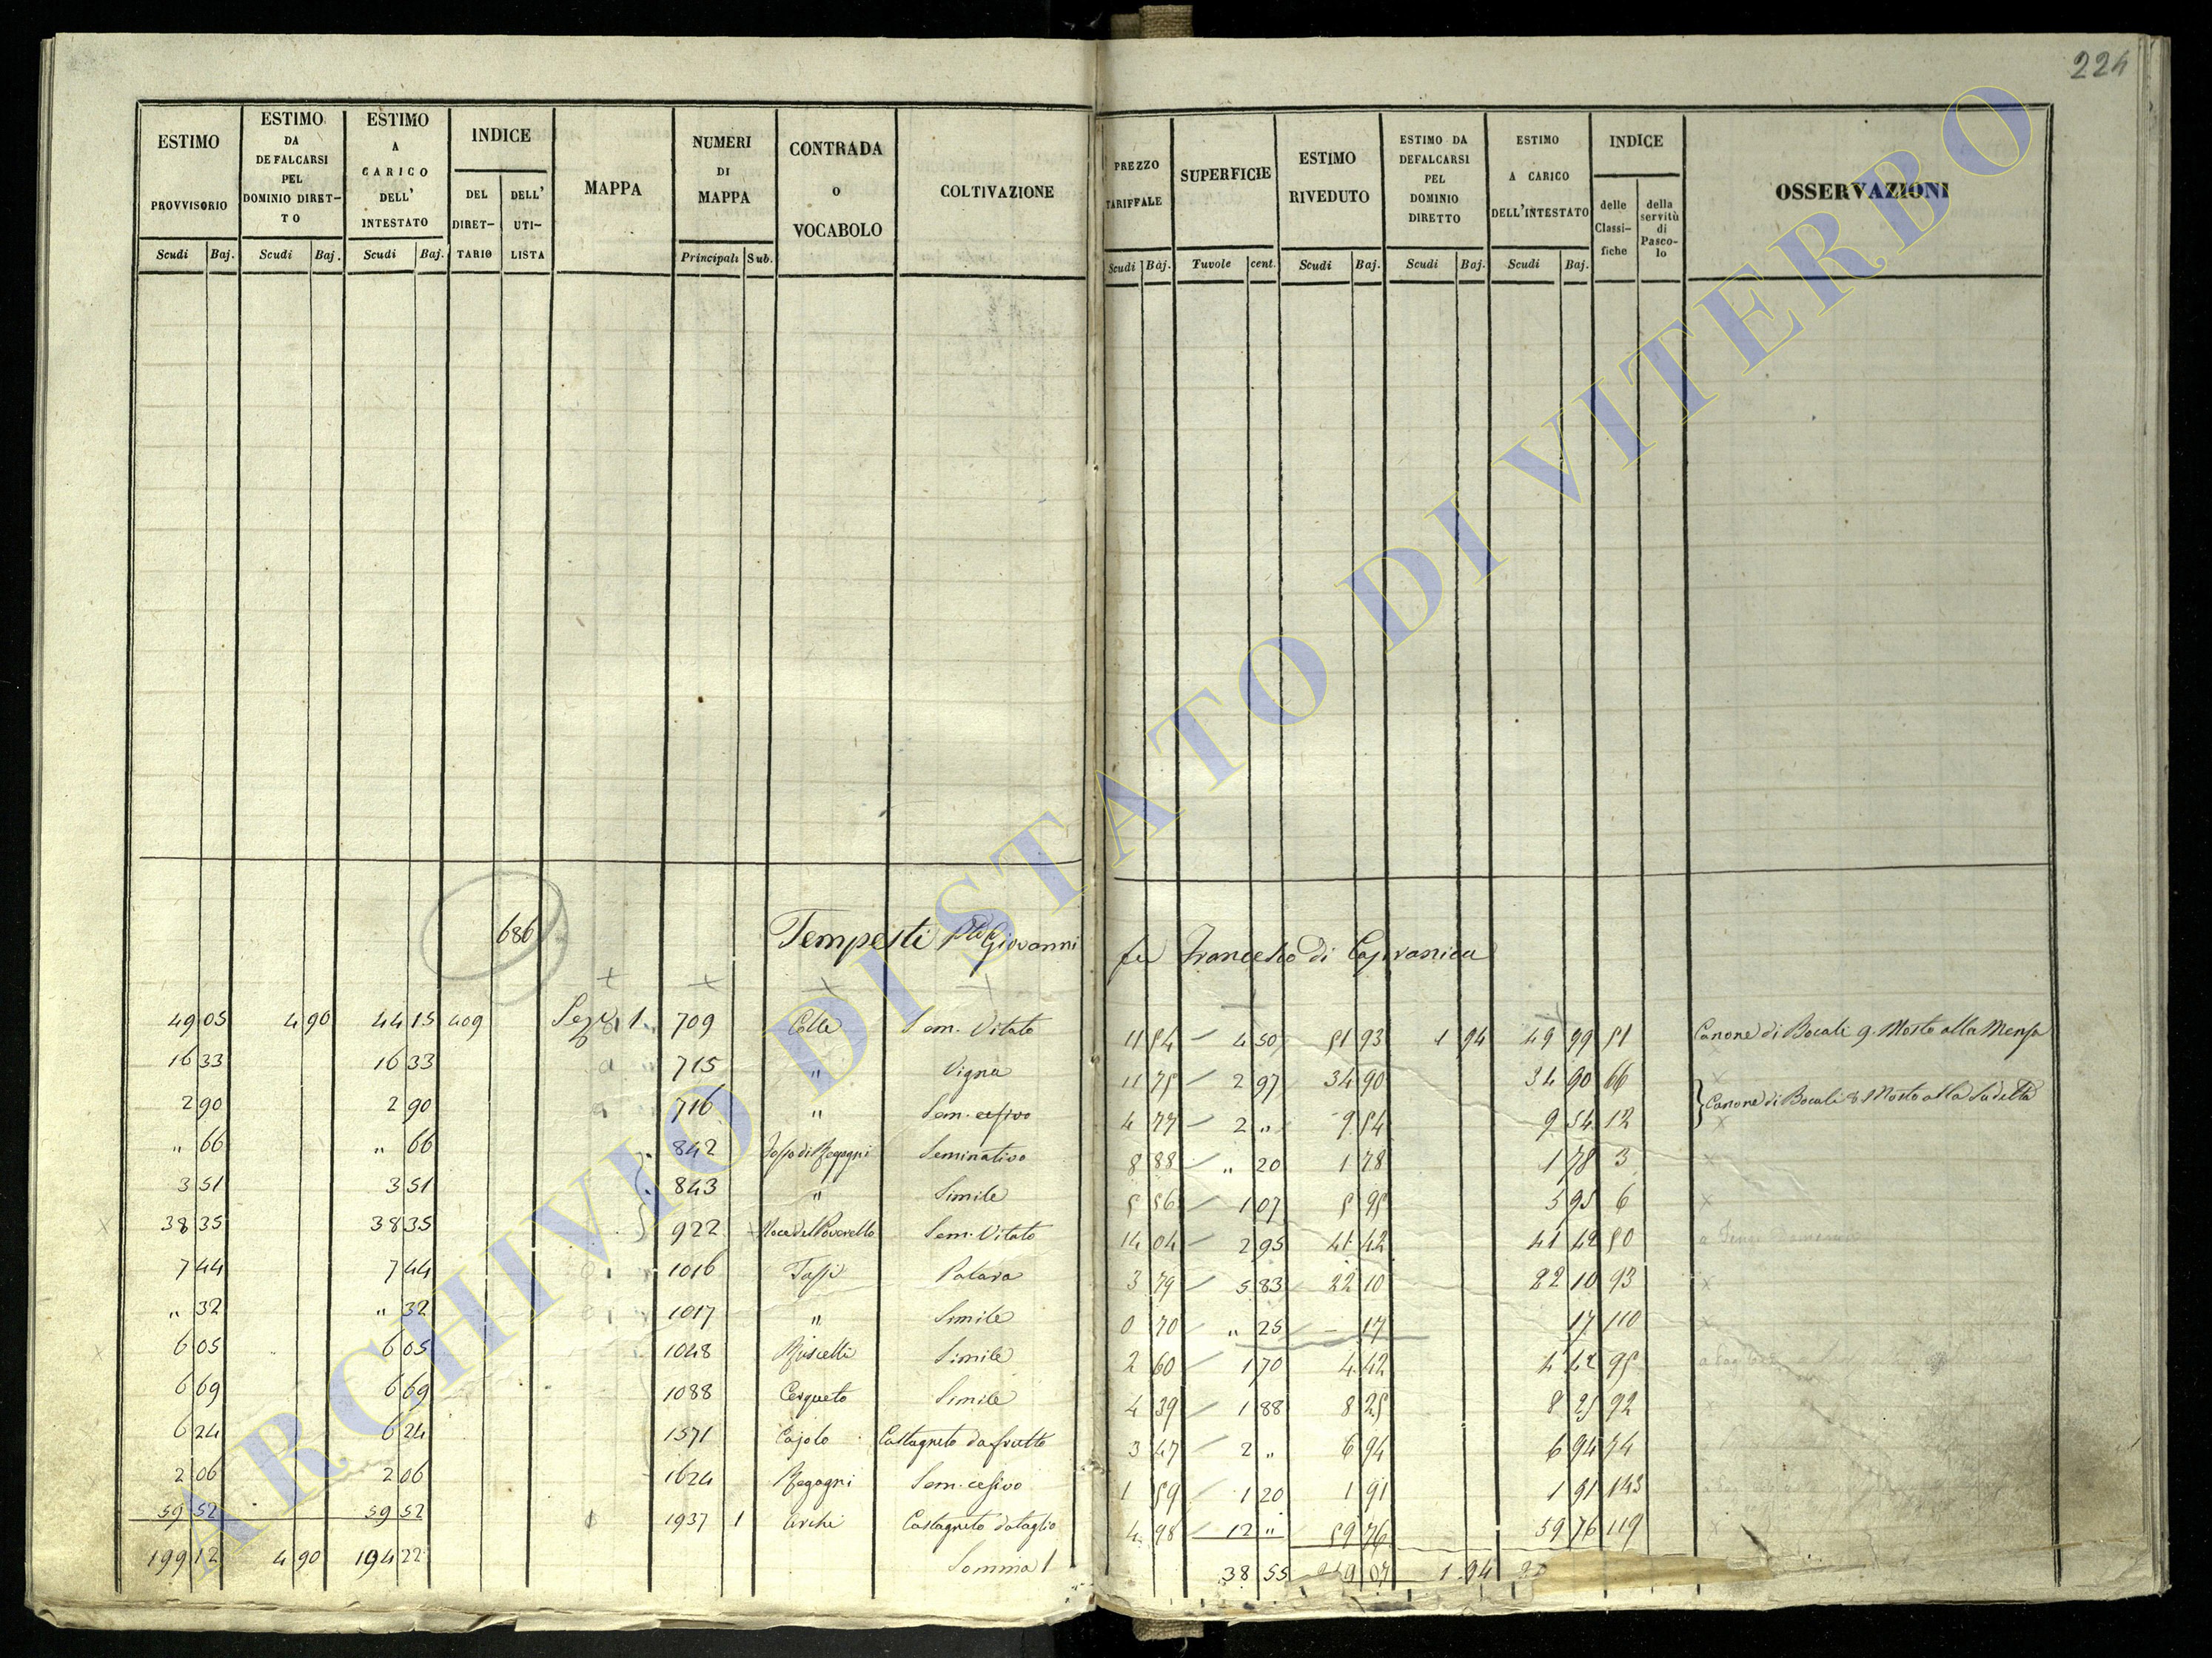 224
ESTIMO PROVVISORIO Scudi Baj. ESTIMO DA DEFALCARSI PEL DOMINIO DIRET-TO Scudi Baj. ESTIMO A CARICO DELL' INTESTATO Scudi Baj. INDICE DEL DIRET-TARIO DELL' UTI-LISTA MAPPA NUMERI DI MAPPA Principali Sub. CONTRADA O VOCABOLO COLTIVAZIONE PREZZO TARIFFALE Scudi Baj. SUPERFICIE Tavole cent. ESTIMO RIVEDUTO Scudi Baj. ESTIMO DA DEFALCARSI PEL DOMINIO DIRETTO Scudi Baj. ESTIMO A CARICO DELL'INTESTATO Scudi Baj. INDICE delle Classi-fiche della servitù di Pasco-lo OSSERVAZIONI
686 Tempesti Giovanni fu Francesco di Capranica
49 05 4 90 44 15 409 Sez. 1 709 Colle Sem. Vitato 11 54 4 50 51 93 1 94 49 99 51 Canone di Bocali 9. Mosto alla Mensa
16 33 16 33 715 " Vigna 11 75 2 97 34 90 34 90 66
2 90 2 90 716 " Sem. cesivo 4 77 2 " 9 54 9 54 12 Canone di Bocali 8 Mosto alla Sudetta
" 66 " 66 842 Fosso di Regagni Seminativo 8 88 " 20 1 78 1 78 3
3 51 3 51 843 " Simile 5 56 1 07 5 95 5 95 6
38 35 38 35 922 Noce del Poverello Sem. Vitato 14 04 2 95 41 42 41 42 50
7 44 7 44 1016 Tassi Palara 3 79 5 83 22 10 22 10 93
" 32 " 32 1017 " Simile 0 70 " 25 - 17 17 110
6 05 6 05 1048 Ruscelli Simile 2 60 1 70 4 42 4 42 95
6 69 6 69 1088 Cerqueto Simile 4 39 1 88 8 25 8 25 92
6 24 6 24 1571 Cajolo Castagneto da frutto 3 47 2 " 6 94 6 94 74
2 06 2 06 1624 Regagni Sem. cesivo 1 59 1 20 1 91 1 91 143
59 52 59 52 1937 1 Castagneto da taglio 4 98 12 " 59 76 59 76 119
199 12 4 90 194 22 Somma 38 55 1 94
ARCHIVIO DI STATO DI VITERBO